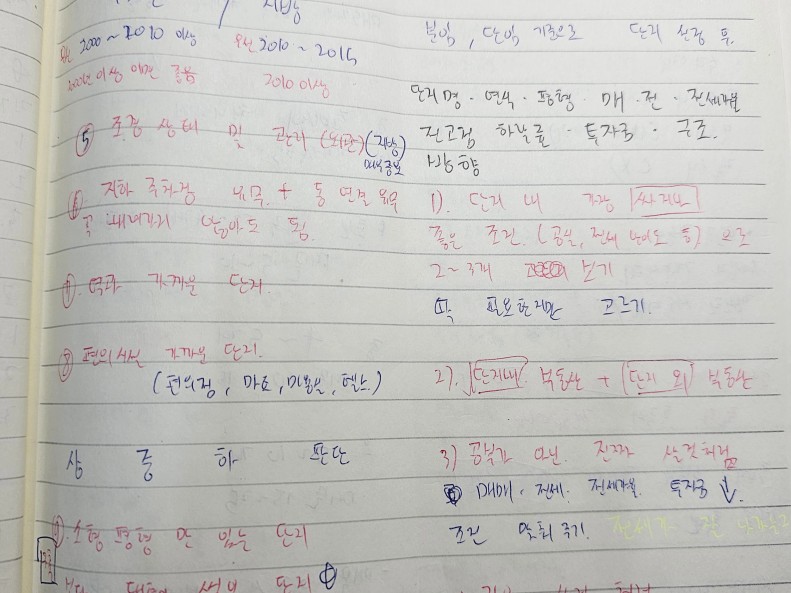 지방
2000~2010 이상 우선 2010~2015
2000년 이상 이면 좋음 2010 이상
⑤ 조경 상태 및 관리 (외관) (지방)
매우중요
⑥ 지하 주차장 유무 + 동 연결 유무
꼭 안아도 됨.
⑦. 역과 가까운 단지
⑧ 편의시설 가까운 단지.
(편의점, 마트, 미용실, 헬스)
상 중 하 판단
소형 평형 만 있는 단지
단지
분위, 단위 기준으로 단지 선정 후.
단지명 · 연식 · 평형 · 매 · 전 · 전세가율
전고점 하락률 · 투자금 · 구조.
방향
1). 단지 내 가장 싸지만
좋은 조건. (공실, 전세 등) 으로
2~3개 보기
딱 필요한지만 고르기.
2). 단지내 부동산 + 단지 외 부동산
3) 공부가 아닌. 진짜 살것처럼
매매, 전세. 전세가율. 투자금 ↓.
조건 맞춰 주기. 전세가